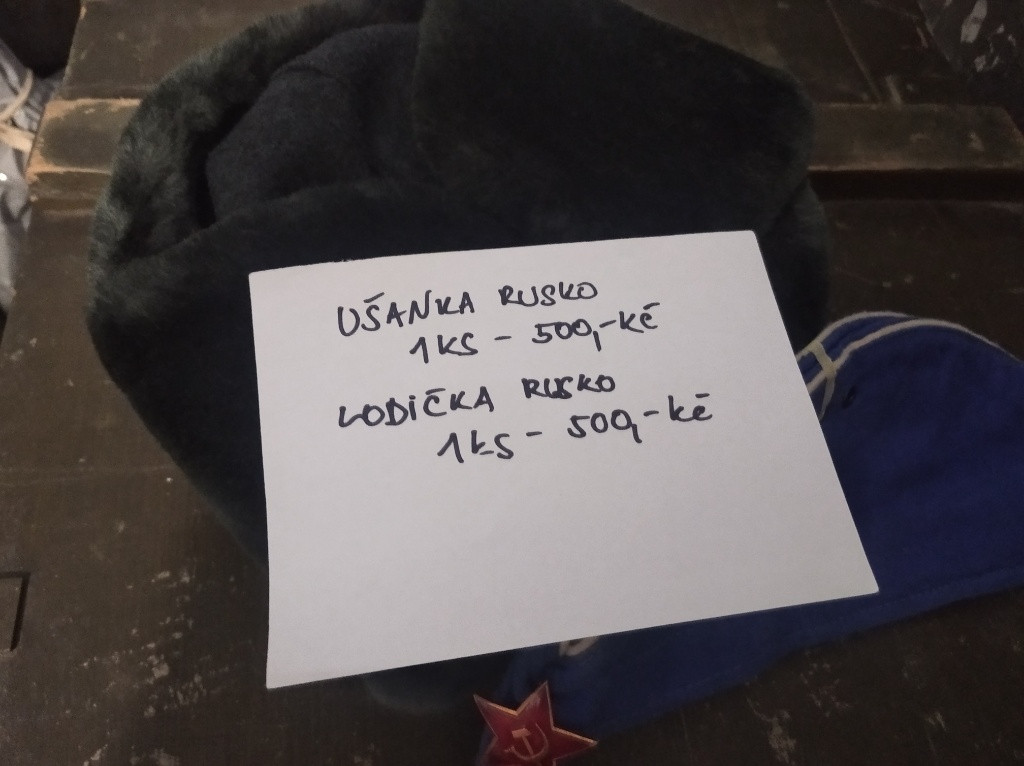 UŠANKA RUSKO
1KS - 500,-KČ
LODIČKA RUSKO
1KS - 500,-KČ